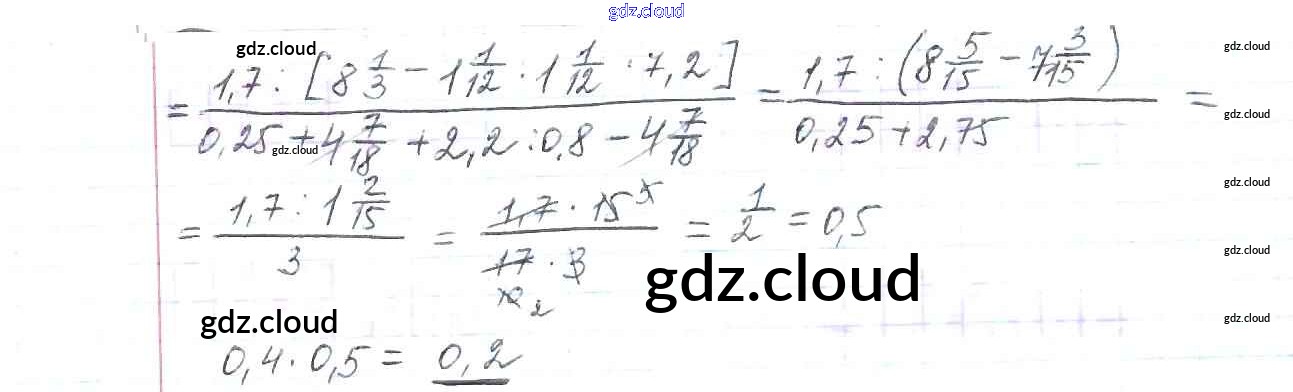 gdz.cloud
gdz.cloud gdz.cloud
= 1,7 : [8 1/3 − 1 1/12 · 1 1/12 · 7,2] / 0,25 + 4 7/18 + 2,2 : 0,8 − 4 7/18 = 1,7 : (8 5/15 − 7 3/15) / 0,25 + 2,75 =
gdz.cloud gdz.cloud
gdz.cloud
= 1,7 : 1 2/15 / 3 = 1,7 · 15 5 / 17 · 3 10 2 = 1/2 = 0,5
gdz.cloud
gdz.cloud
gdz.cloud gdz.cloud
0,4 · 0,5 = 0,2